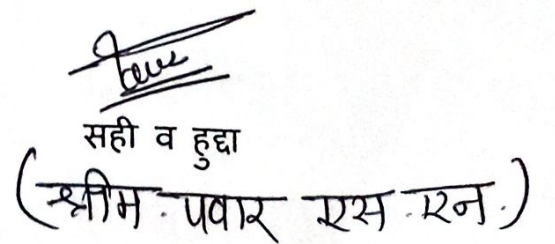 सही व हुद्दा
(श्रीम. पवार एस.एन.)